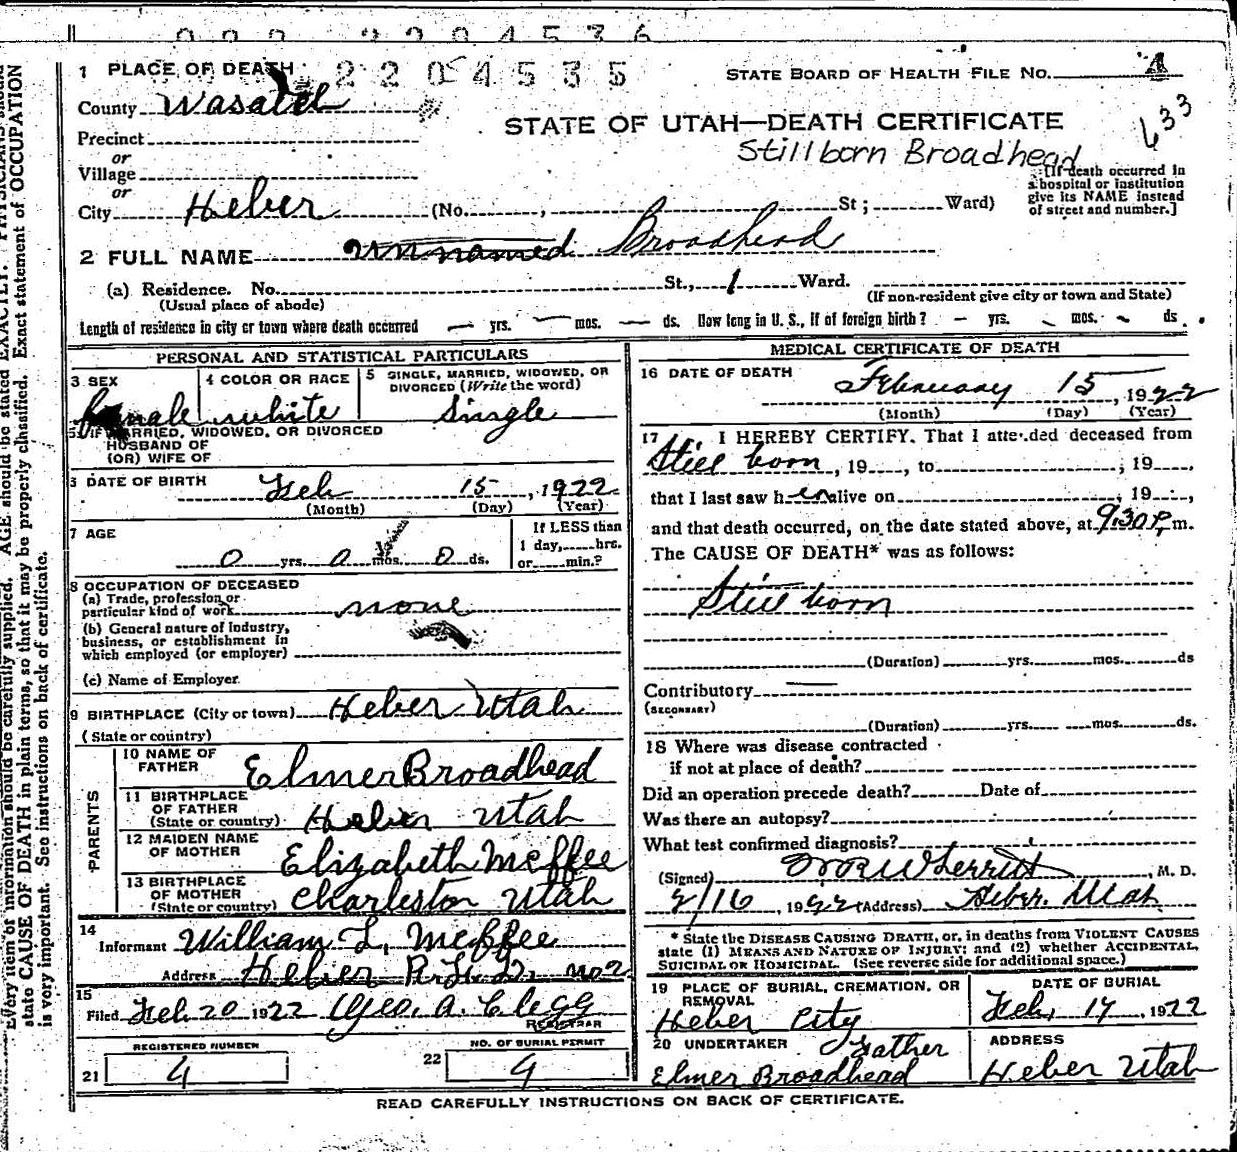 2204536
1 PLACE OF DEATH 2204535 STATE BOARD OF HEALTH FILE NO. 4
County Wasatch
633
STATE OF UTAH—DEATH CERTIFICATE
Precinct
Stillborn Broadhead
or
Village
or
[If death occurred in a hospital or institution give its NAME instead of street and number.]
City Heber (No. , St ; Ward)
2 FULL NAME Unnamed Broadhead
(a) Residence. No. St., 1 Ward.
(Usual place of abode) (If non-resident give city or town and State)
Length of residence in city or town where death occurred — yrs. — mos. — ds. How long in U. S., if of foreign birth? - yrs. - mos. - ds.
PERSONAL AND STATISTICAL PARTICULARS
3 SEX female
4 COLOR OR RACE white
5 SINGLE, MARRIED, WIDOWED, OR DIVORCED (Write the word) Single
IF MARRIED, WIDOWED, OR DIVORCED
HUSBAND OF
(OR) WIFE OF
DATE OF BIRTH Feb 15, 1922
(Month) (Day) (Year)
7 AGE 0 yrs. 0 mos. 0 ds.
If LESS than
1 day, hrs.
or min.?
8 OCCUPATION OF DECEASED
(a) Trade, profession, or
particular kind of work none
(b) General nature of industry,
business, or establishment in
which employed (or employer)
(c) Name of Employer
9 BIRTHPLACE (City or town) Heber Utah
(State or country)
PARENTS
10 NAME OF FATHER Elmer Broadhead
11 BIRTHPLACE OF FATHER (State or country) Heber Utah
12 MAIDEN NAME OF MOTHER Elizabeth McAffee
13 BIRTHPLACE OF MOTHER (State or country) Charleston Utah
14 Informant William L, McAffee
Address Heber R.F.D. no2
15 Filed Feb 20 1922 Geo. A. Clegg
REGISTRAR
REGISTERED NUMBER NO. OF BURIAL PERMIT
21 4 22 4
MEDICAL CERTIFICATE OF DEATH
16 DATE OF DEATH February 15, 1922
(Month) (Day) (Year)
17 I HEREBY CERTIFY, That I attended deceased from
Still born, 19 , to , 19 ,
that I last saw her alive on , 19 ,
and that death occurred, on the date stated above, at 9.30 P, m.
The CAUSE OF DEATH* was as follows:
Still born
(Duration) yrs. mos. ds
Contributory —
(SECONDARY)
(Duration) yrs. mos. ds.
18 Where was disease contracted
if not at place of death?
Did an operation precede death? Date of
Was there an autopsy?
What test confirmed diagnosis?
(Signed) W R Wherritt, M. D.
2/16 1922 (Address) Heber. Utah
* State the DISEASE CAUSING DEATH, or, in deaths from VIOLENT CAUSES
state (1) MEANS AND NATURE OF INJURY; and (2) whether ACCIDENTAL,
SUICIDAL OR HOMICIDAL. (See reverse side for additional space.)
19 PLACE OF BURIAL, CREMATION, OR REMOVAL DATE OF BURIAL
Heber City Feb, 17, 1922
20 UNDERTAKER Father ADDRESS
Elmer Broadhead Heber Utah
READ CAREFULLY INSTRUCTIONS ON BACK OF CERTIFICATE.
Every item of information should be carefully supplied. AGE should be stated EXACTLY. PHYSICIANS should
state CAUSE OF DEATH in plain terms, so that it may be properly classified. Exact statement of OCCUPATION
is very important. See instructions on back of certificate.